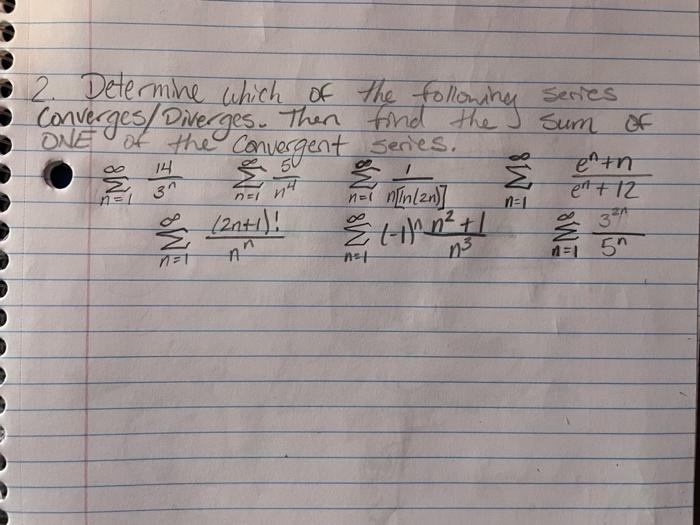 2. Determine which of the following series
Converges/Diverges. Then find the sum of
ONE of the Convergent series.
∞ Σ n=1 14/3ⁿ ∞ Σ n=1 5/n⁴ ∞ Σ n=1 1/n[ln(2n)] ∞ Σ n=1 eⁿ+n/eⁿ+12
∞ Σ n=1 (2n+1)!/nⁿ ∞ Σ n=1 (-1)ⁿ n²+1/n³ ∞ Σ n=1 3²ⁿ/5ⁿ